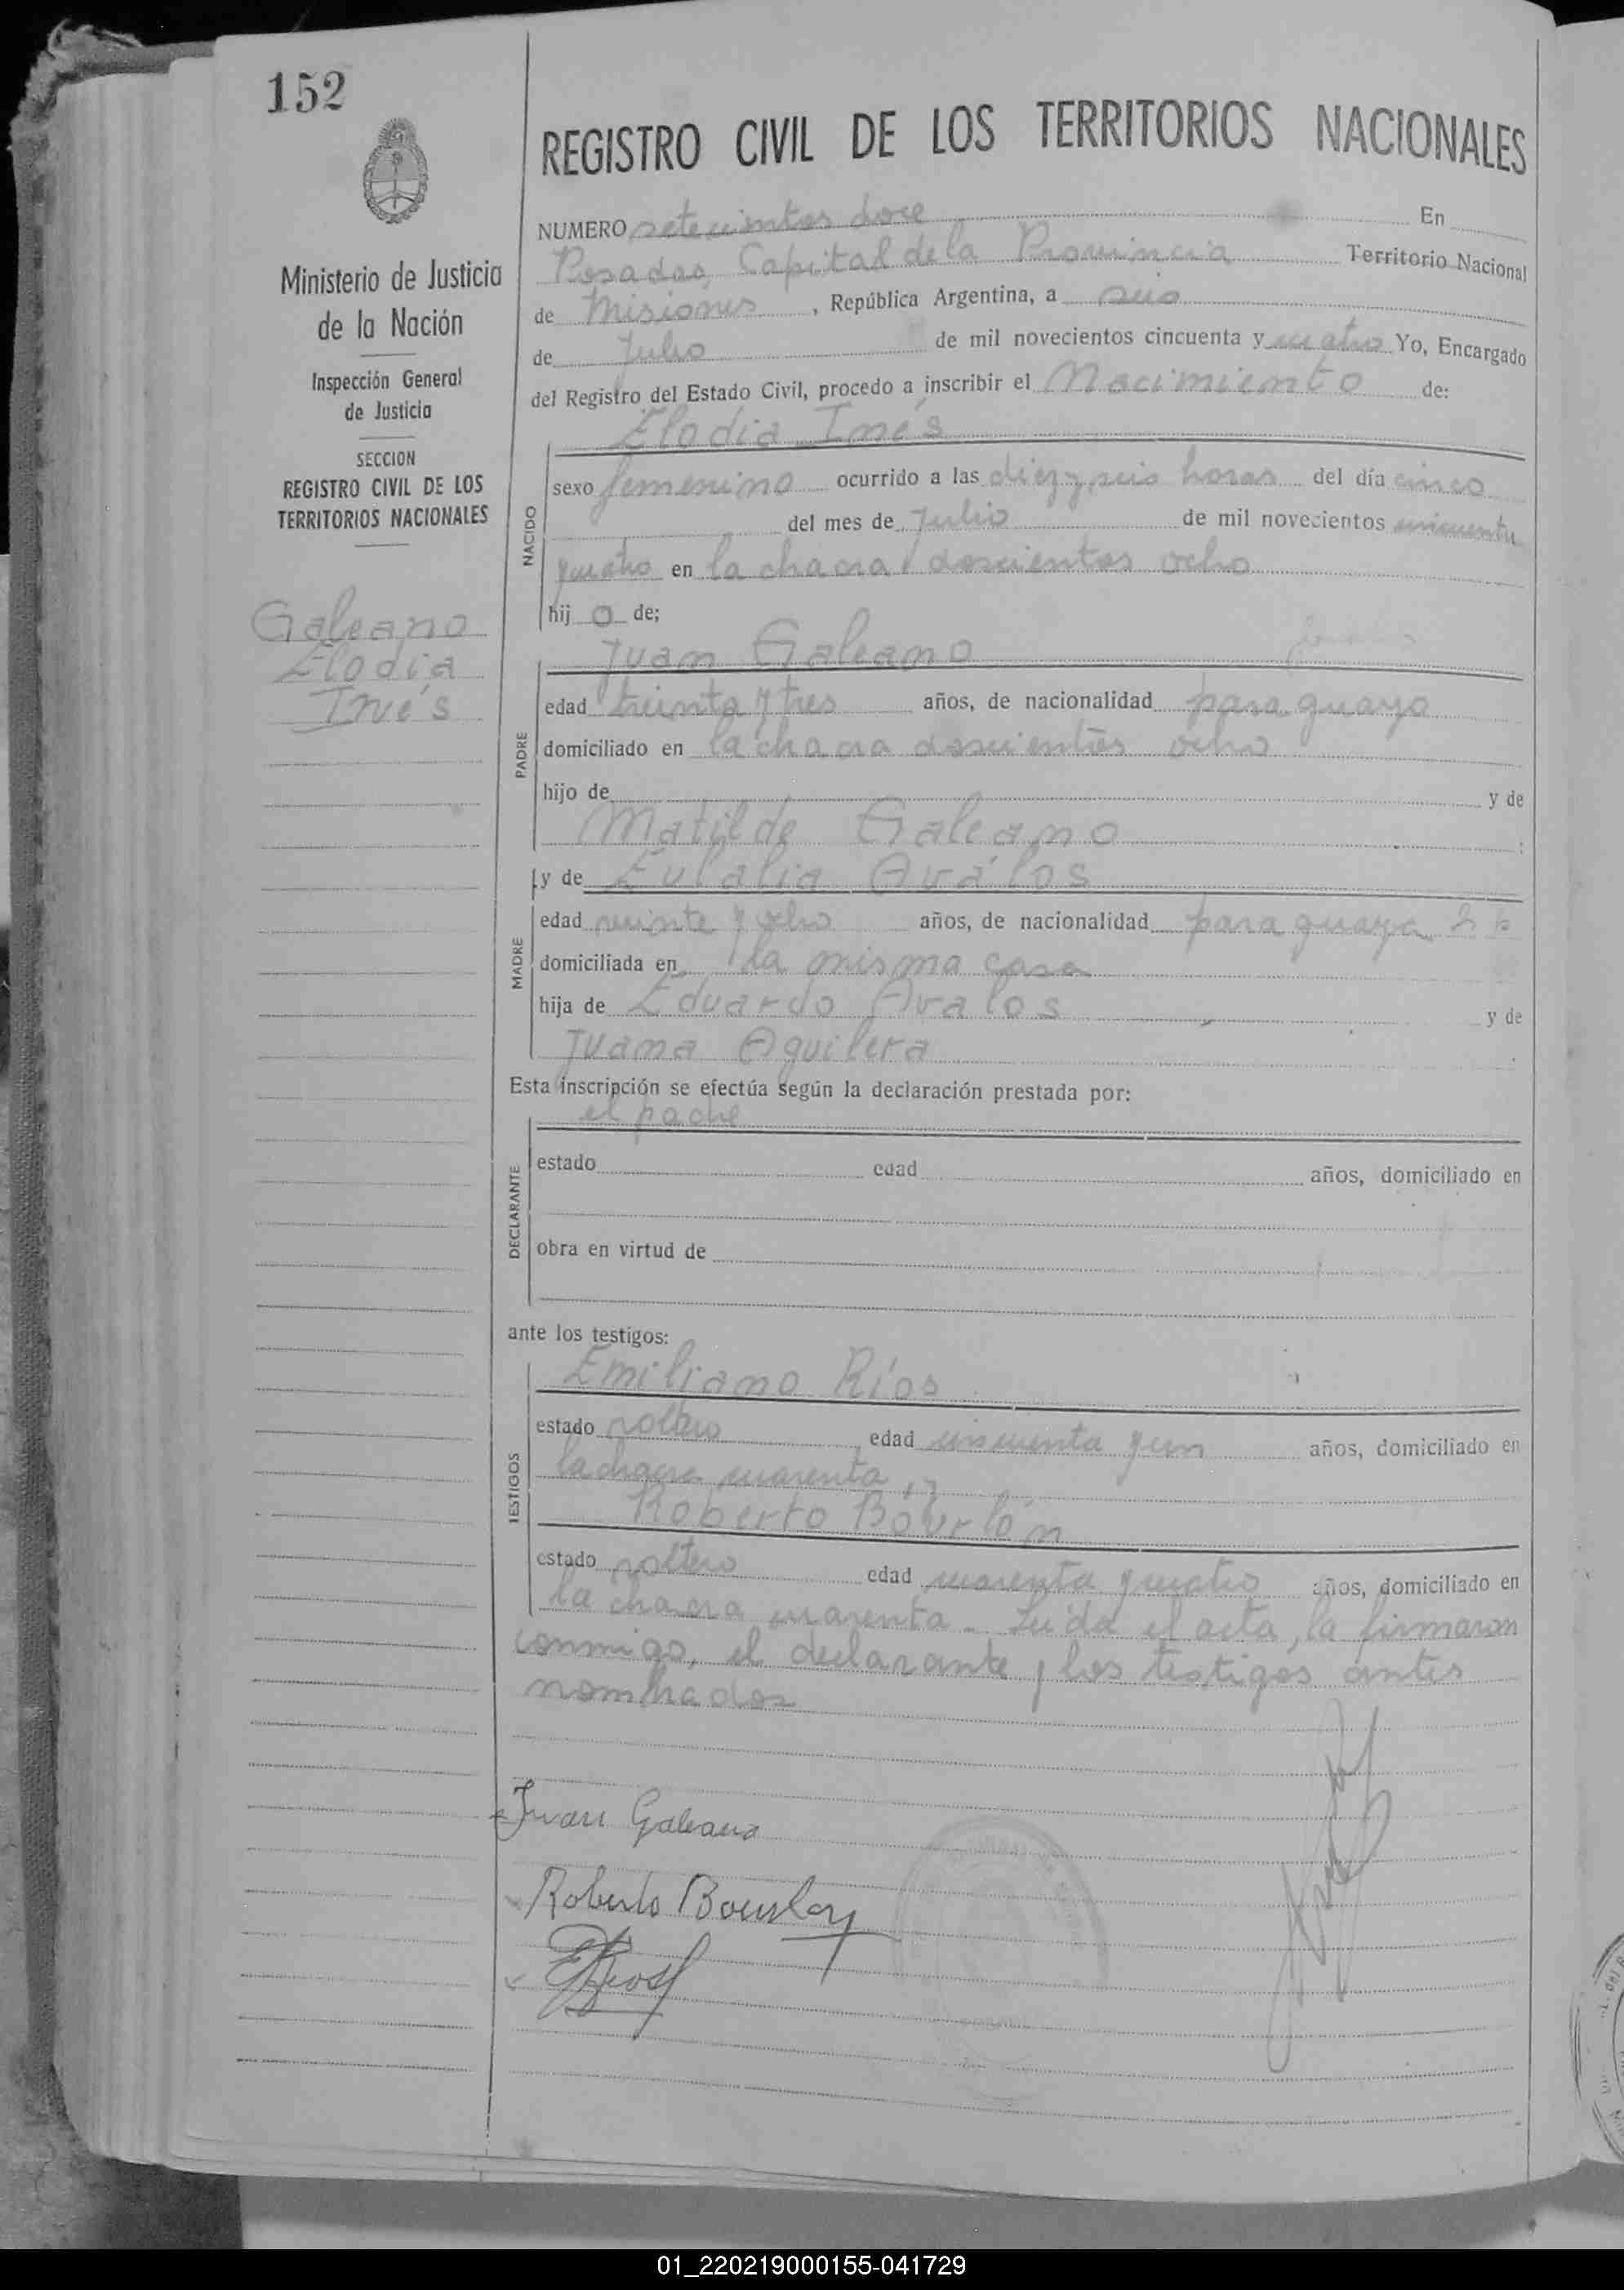 152
REGISTRO CIVIL DE LOS TERRITORIOS NACIONALES
Ministerio de Justicia
de la Nación
Inspección General
de Justicia
SECCION
REGISTRO CIVIL DE LOS
TERRITORIOS NACIONALES
Galeano
Elodia
Inés
NUMERO setecientos doce En
Posadas, Capital de la Provincia Territorio Nacional
de Misiones, República Argentina, a seis
de Julio de mil novecientos cincuenta y cuatro Yo, Encargado
del Registro del Estado Civil, procedo a inscribir el Nacimiento de:
Elodia Inés
NACIDO
sexo femenino ocurrido a las diez y seis horas del día cinco
del mes de Julio de mil novecientos cincuenta
y cuatro en la chacra doscientos ocho
hij o de;
Juan Galeano
PADRE
edad treinta y tres años, de nacionalidad paraguayo
domiciliado en la chacra doscientos ocho
hijo de y de
Matilde Galeano ;
y de Eulalia Aválos
MADRE
edad veinte y ocho años, de nacionalidad paraguaya
domiciliada en la misma casa
hija de Eduardo Avalos y de
Juana Aguilera
Esta inscripción se efectúa según la declaración prestada por:
el padre
DECLARANTE
estado edad años, domiciliado en
obra en virtud de
ante los testigos:
Emiliano Ríos
TESTIGOS
estado soltero edad cincuenta y un años, domiciliado en
la chacra cuarenta, y
Roberto Bourlón
estado soltero edad cuarenta y cuatro años, domiciliado en
la chacra cuarenta. Leída el acta, la firmaron
conmigo, el declarante y los testigos antes
nombrados
Juan Galeano
Roberto Bourlon
ERios
01_220219000155-041729